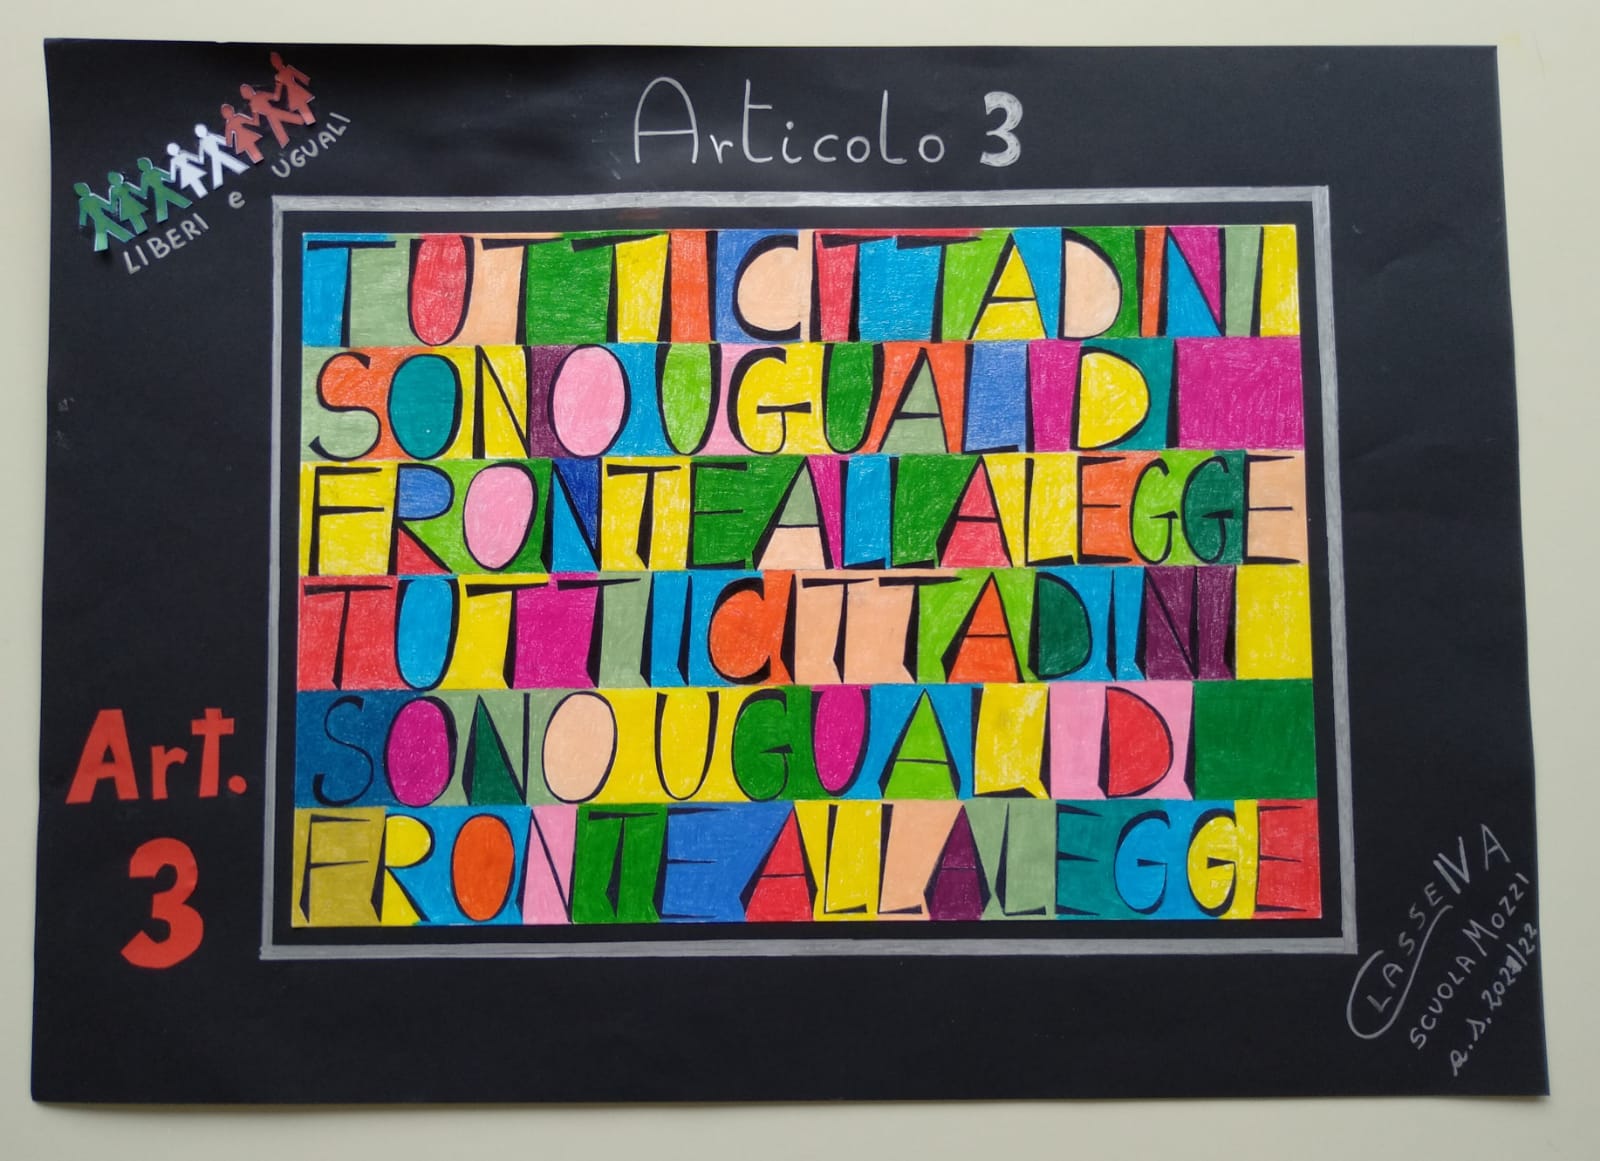 Articolo 3
LIBERI e UGUALI
TUTTIICITTADINI
SONOUGUALIDI
FRONTEALLALEGGE
TUTTIICITTADINI
SONOUGUALIDI
FRONTEALLALEGGE
Art.
3
CLASSE IV A
SCUOLA MOZZI
a.s. 2021/22